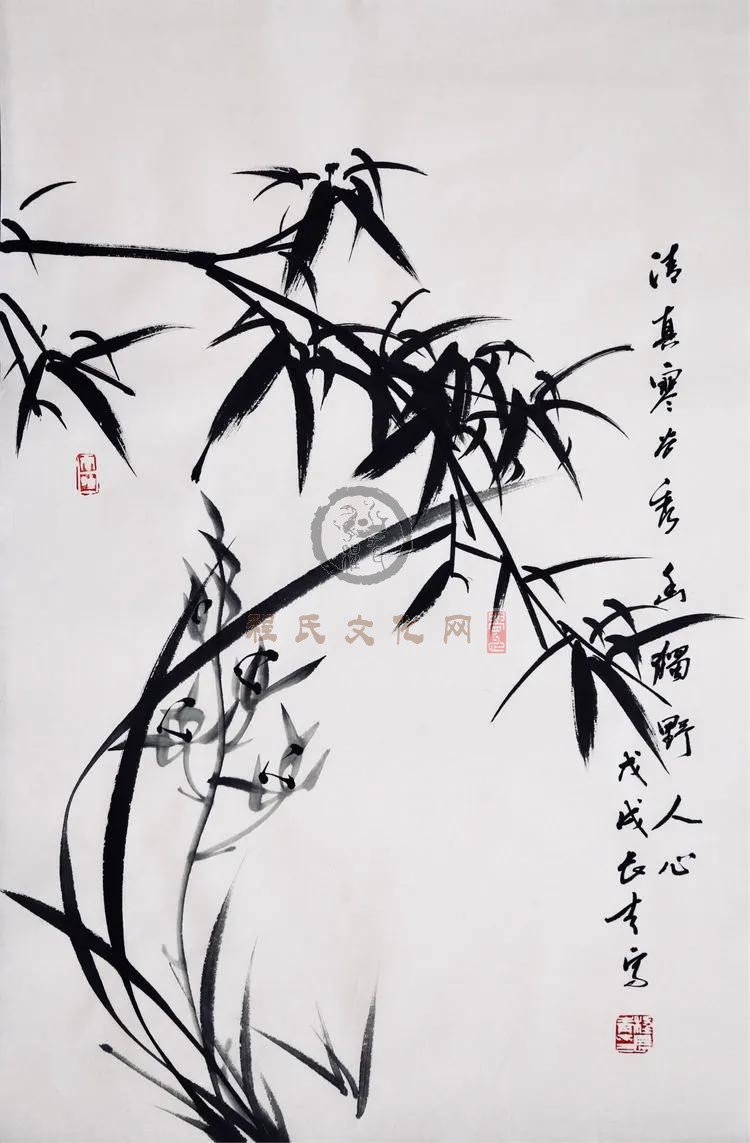 清真寒谷秀幽獨野人心
戊戌长青写
程氏文化网